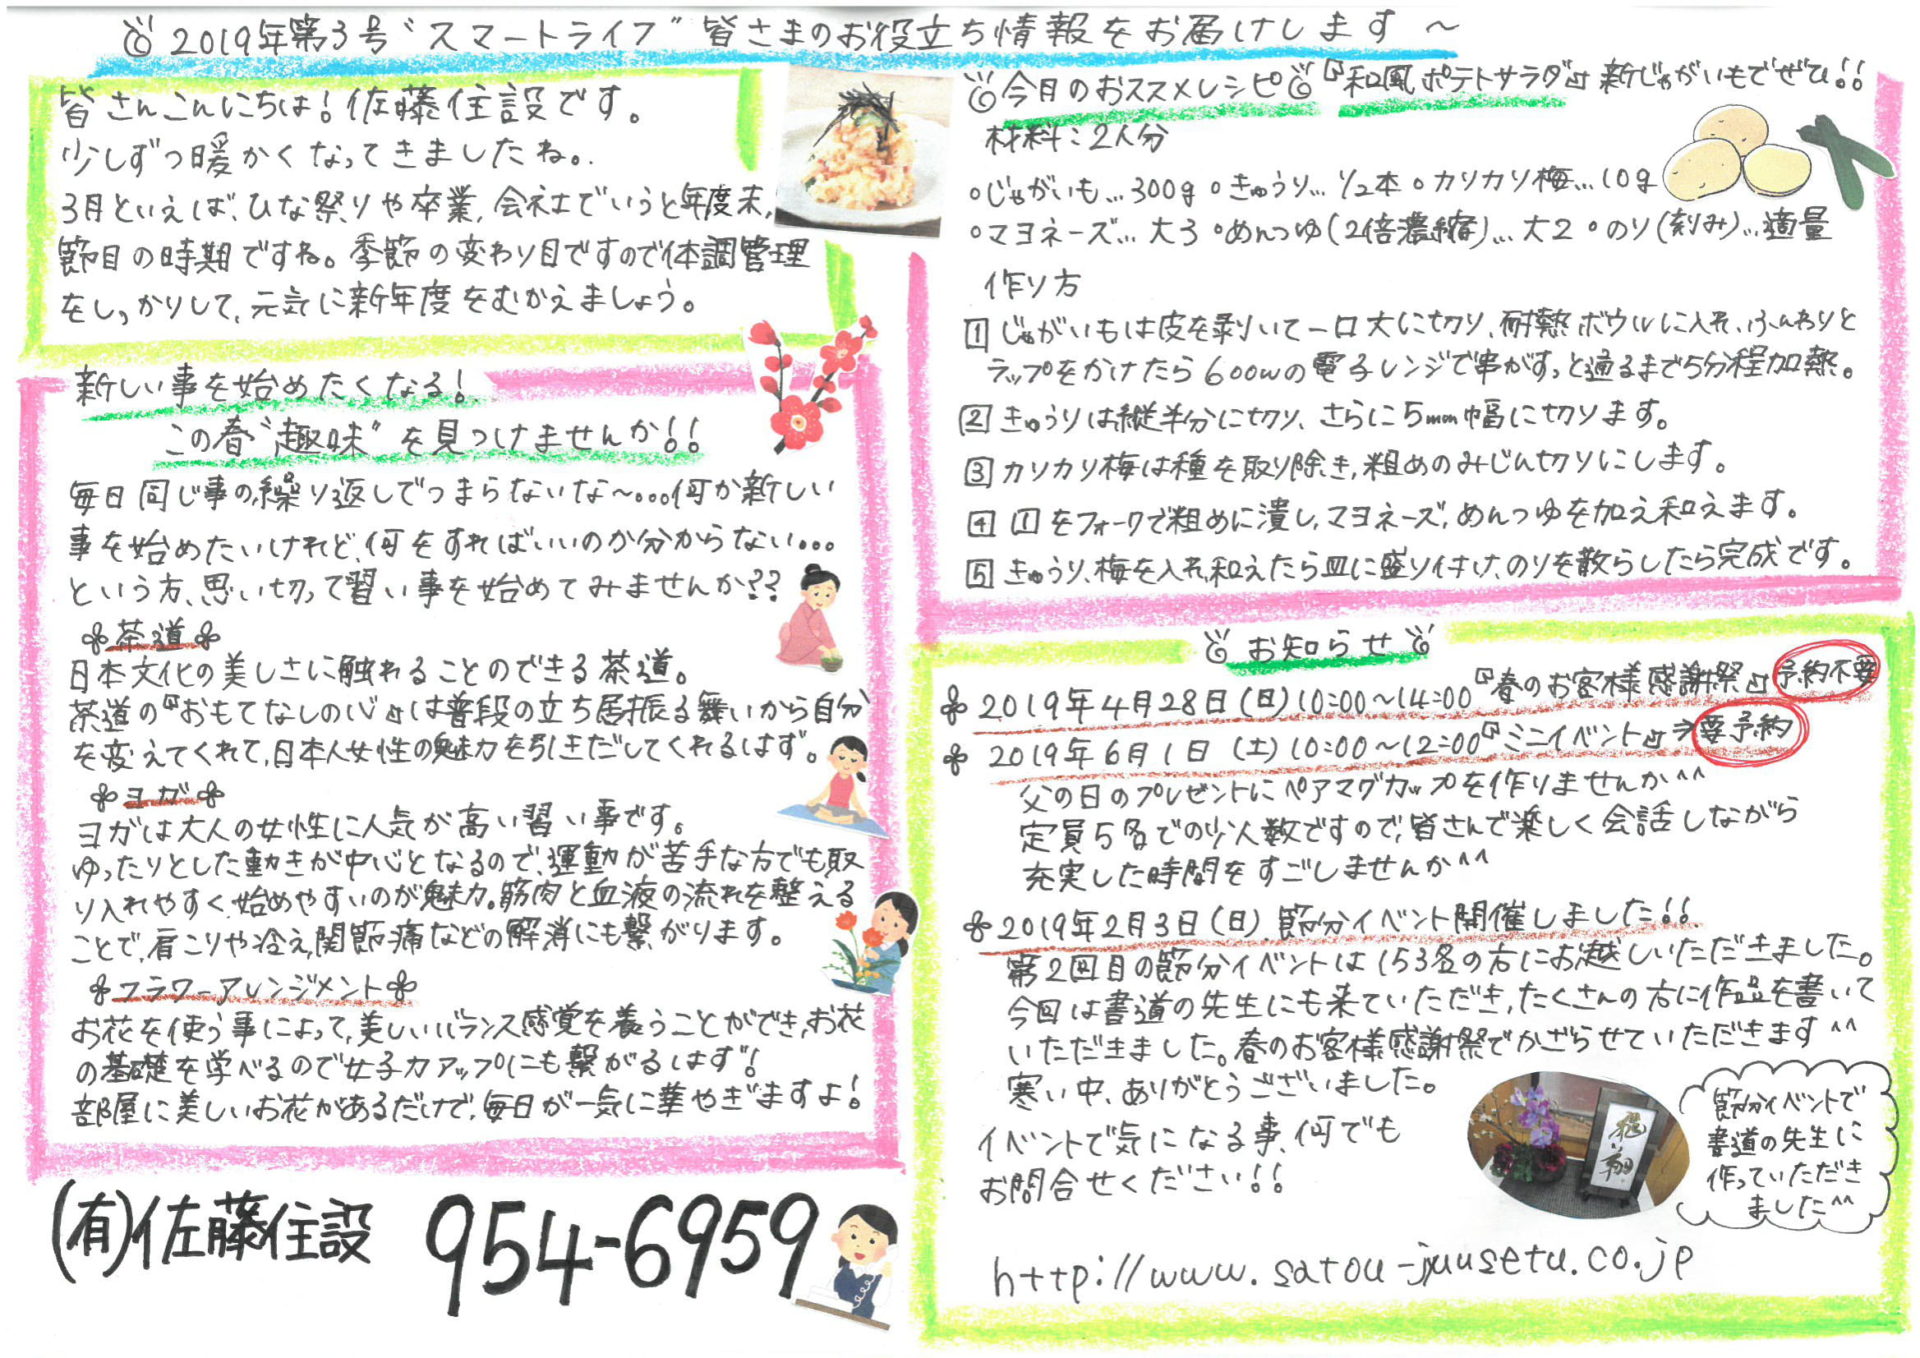 2019年第3号"スマートライフ"皆さまのお役立ち情報をお届けします～
皆さんこんにちは!佐藤住設です。
少しずつ暖かくなってきましたね。
3月といえば、ひな祭りや卒業、会社でいうと年度末、
節目の時期ですね。季節の変わり目ですので体調管理
をしっかりして、元気に新年度をむかえましょう。
新しい事を始めたくなる!
この春"趣味"を見つけませんか!!
毎日同じ事の繰り返しでつまらないな～...何か新しい
事を始めたいけれど、何をすればいいのか分からない...
という方、思い切って習い事を始めてみませんか??
茶道
日本文化の美しさに触れることのできる茶道。
茶道の『おもてなしの心』は普段の立ち居振る舞いから自分
を変えてくれて、日本人女性の魅力を引きだしてくれるはず。
ヨガ
ヨガは大人の女性に人気が高い習い事です。
ゆったりとした動きが中心となるので、運動が苦手な方でも取
り入れやすく、始めやすいのが魅力。筋肉と血液の流れを整える
ことで、肩こりや冷え、関節痛などの解消にも繋がります。
フラワーアレンジメント
お花を使う事によって、美しいバランス感覚を養うことができ、お花
の基礎を学べるので女子力アップにも繋がるはず!
部屋に美しいお花があるだけで、毎日が一気に華やぎますよ!
(有)佐藤住設 954-6959
今月のおススメレシピ『和風ポテトサラダ』新じゃがいもでぜひ!!
材料:2人分
○じゃがいも...300g ○きゅうり...1/2本 ○カリカリ梅...10g
○マヨネーズ...大3 ○めんつゆ(2倍濃縮)...大2 ○のり(刻み)...適量
作り方
1 じゃがいもは皮を剥いて一口大に切り、耐熱ボウルに入れ、ふんわりと
ラップをかけたら600wの電子レンジで串がすっと通るまで5分程加熱。
2 きゅうりは縦半分に切り、さらに5mm幅に切ります。
3 カリカリ梅は種を取り除き、粗めのみじん切りにします。
4 1をフォークで粗めに潰し、マヨネーズ、めんつゆを加え和えます。
5 きゅうり、梅を入れ和えたら皿に盛り付け、のりを散らしたら完成です。
お知らせ
2019年4月28日(日)10:00～14:00『春のお客様感謝祭』予約不要
2019年6月1日(土)10:00～12:00『ミニイベント』⇒要予約
父の日のプレゼントにペアマグカップを作りませんか^^
定員5名での少人数ですので、皆さんで楽しく会話しながら
充実した時間をすごしませんか^^
2019年2月3日(日)節分イベント開催しました!!
第2回目の節分イベントは153名の方にお越しいただきました。
今回は書道の先生にも来ていただき、たくさんの方に作品を書いて
いただきました。春のお客様感謝祭でかざらせていただきます^^
寒い中、ありがとうございました。
イベントで気になる事、何でも
お問合せください!!
節分イベントで
書道の先生に
作っていただき
ました^^
http://www.satou-juusetu.co.jp